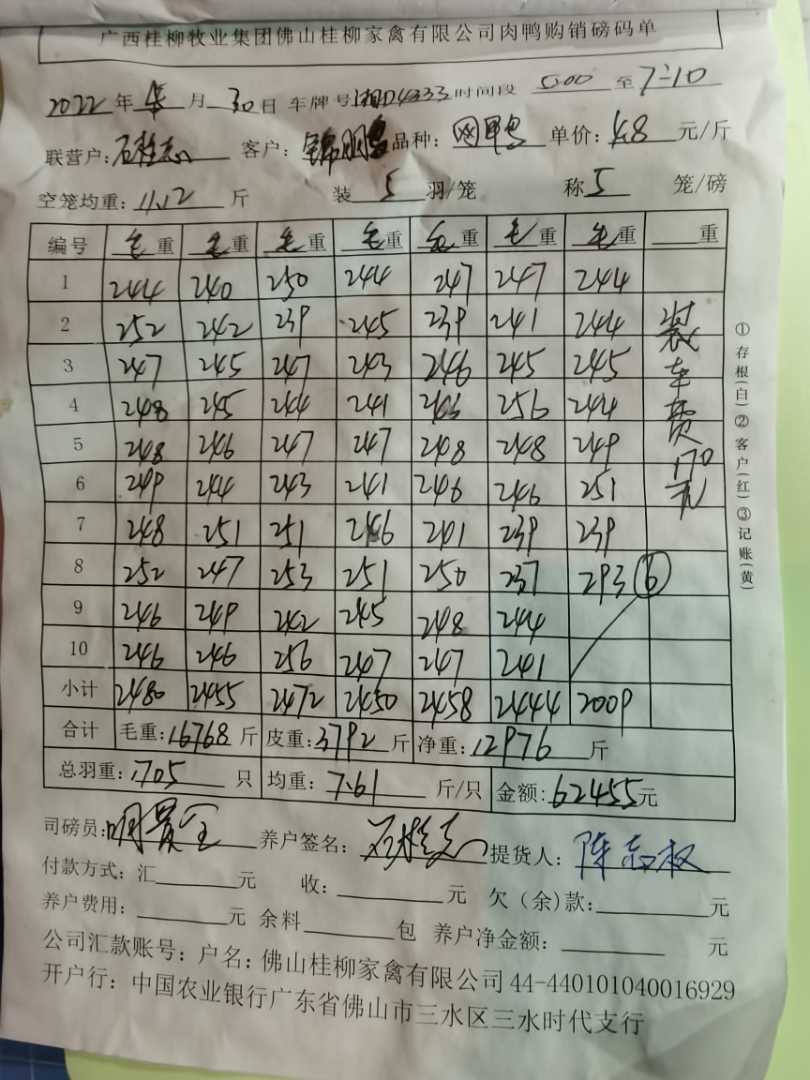 广西桂柳牧业集团佛山桂柳家禽有限公司肉鸭购销磅码单
2022年4月30日 车牌号 湘D24333 时间段 5:00 至 7:10
联营户: 客户: 锦明 品种: 单价: 4.8 元/斤
空笼均重: 11.12 斤 装 5 羽/笼 称 5 笼/磅
编号 毛重 毛重 毛重 毛重 毛重 毛重 毛重 重
1 244 240 250 244 247 247 244
2 252 242 239 245 239 241 244
3 247 245 247 243 246 245 245
4 248 245 244 241 246 256 244
5 248 246 247 247 248 248 249
6 249 244 243 241 246 246 251
7 248 251 251 246 241 239 239
8 252 247 253 251 250 237 293 ⑥
9 246 249 242 245 248 244
10 246 246 256 247 247 241
小计 2480 2455 2472 2450 2458 2444 2009
装车费170元
合计 毛重: 16768 斤 皮重: 3792 斤 净重: 12976 斤
总羽重: 1705 只 均重: 7.61 斤/只 金额: 62455元
①存根(白)②客户(红)③记账(黄)
司磅员: 明贵全 养户签名: 提货人: 陈志权
付款方式: 汇 元 收: 元 欠(余)款: 元
养户费用: 元 余料 包 养户净金额: 元
公司汇款账号: 户名: 佛山桂柳家禽有限公司 44-440101040016929
开户行: 中国农业银行广东省佛山市三水区三水时代支行